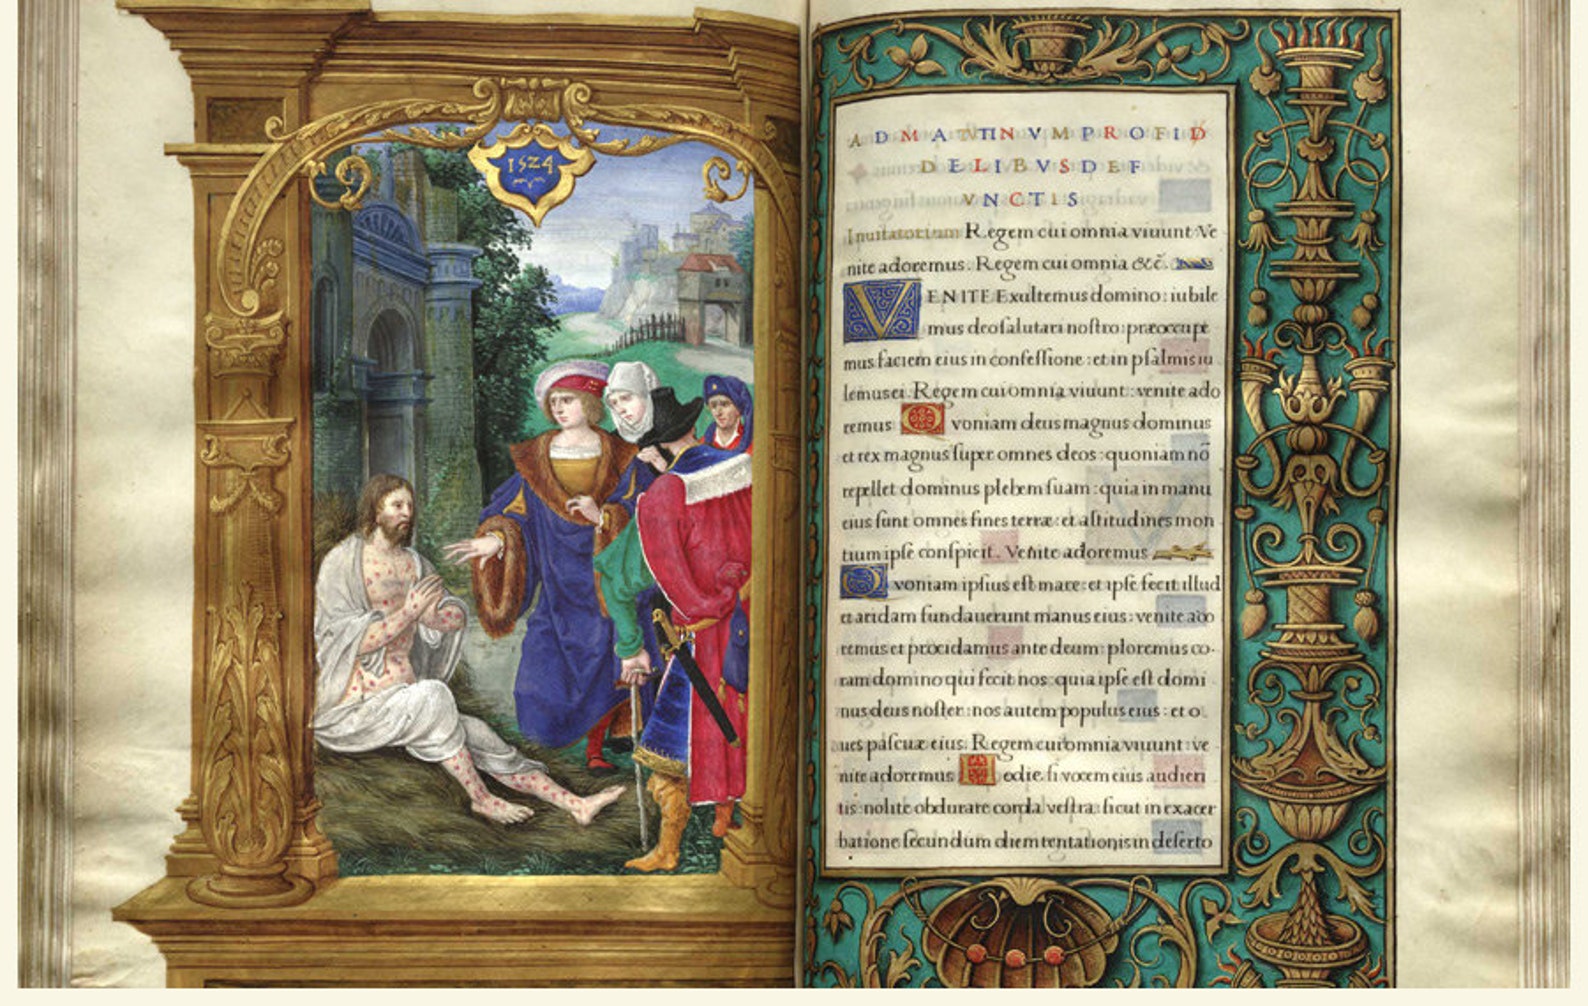 1524
AD MATVTINVM PRO FID
DELIBVS DEF
VNCTIS
Inuitatorium Regem cui omnia viuunt Ve
nite adoremus. Regem cui omnia &c̃.
VENITE Exultemus domino: iubile
mus deo salutari nostro: præoccupe
mus faciem eius in confessione: et in psalmis iu
lemus ei. Regem cui omnia viuunt: venite ado
remus Quoniam deus magnus dominus
et rex magnus super omnes deos: quoniam nõ
repellet dominus plebem suam: quia in manu
eius sunt omnes fines terræ: et altitudines mon
tium ipse conspicit. Venite adoremus
Quoniam ipsius est mare: et ipse fecit illud
et aridam fundauerunt manus eius: venite ado
remus et procidamus ante deum: ploremus co-
ram domino qui fecit nos: quia ipse est domi
nus deus noster: nos autem populus eius: et o
ues pascuæ eius. Regem cui omnia viuunt: ve
nite adoremus Hodie si vocem eius audieri
tis: nolite obdurare corda vestra: sicut in exacer
batione secundum diem tentationis in deserto